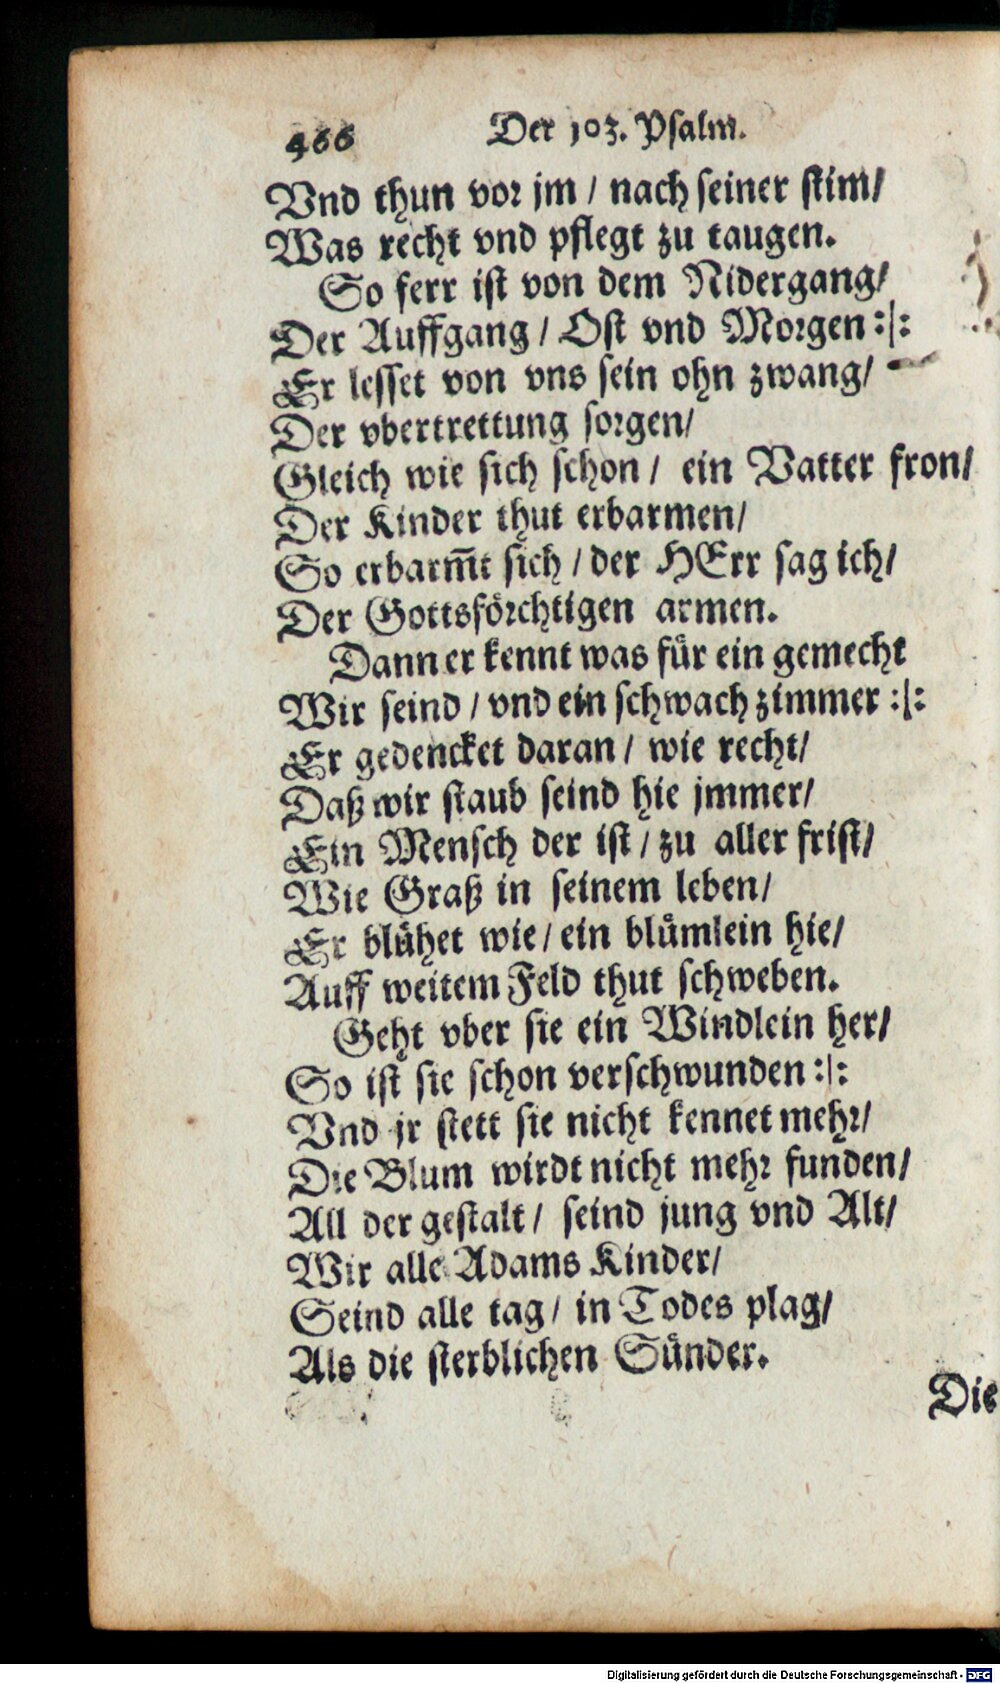 466 Der 103. Psalm.
Vnd thun vor jm / nach seiner stim/
Was recht vnd pflegt zu taugen.
So ferr ist von dem Nidergang/
Der Auffgang / Ost vnd Morgen :|:
Er lesset von vns sein ohn zwang/
Der vbertrettung sorgen/
Gleich wie sich schon / ein Vatter fron/
Der Kinder thut erbarmen/
So erbarm̃t sich / der HErr sag ich/
Der Gottsförchtigen armen.
Dann er kennt was für ein gemecht
Wir seind / vnd ein schwach zimmer :|:
Er gedencket daran / wie recht/
Daß wir staub seind hie jmmer/
Ein Mensch der ist / zu aller frist/
Wie Graß in seinem leben/
Er blühet wie / ein blümlein hie/
Auff weitem Feld thut schweben.
Geht vber sie ein Windlein her/
So ist sie schon verschwunden :|:
Vnd jr stett sie nicht kennet mehr/
Die Blum wirdt nicht mehr funden/
All der gestalt / seind jung vnd Alt/
Wir alle Adams Kinder/
Seind alle tag / in Todes plag/
Als die sterblichen Sünder.
Die
Digitalisierung gefördert durch die Deutsche Forschungsgemeinschaft - DFG